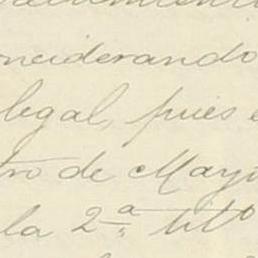 nciderando
legal, pues e
tro de Mayo
la 2ª titº